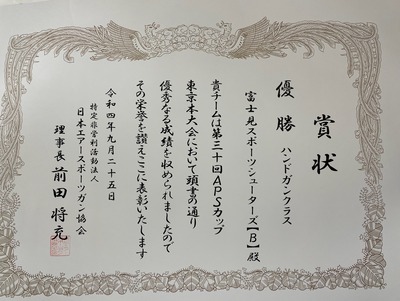 賞状
優勝 ハンドガンクラス
富士見スポーツシューターズ【B】殿
貴チームは第三十回APSカップ
東京本大会において頭書の通り
優秀なる成績を収められましたので
その栄誉を讃えここに表彰いたします
令和四年九月二十五日
特定非営利活動法人
日本エアースポーツガン協会
理事長 前田将充